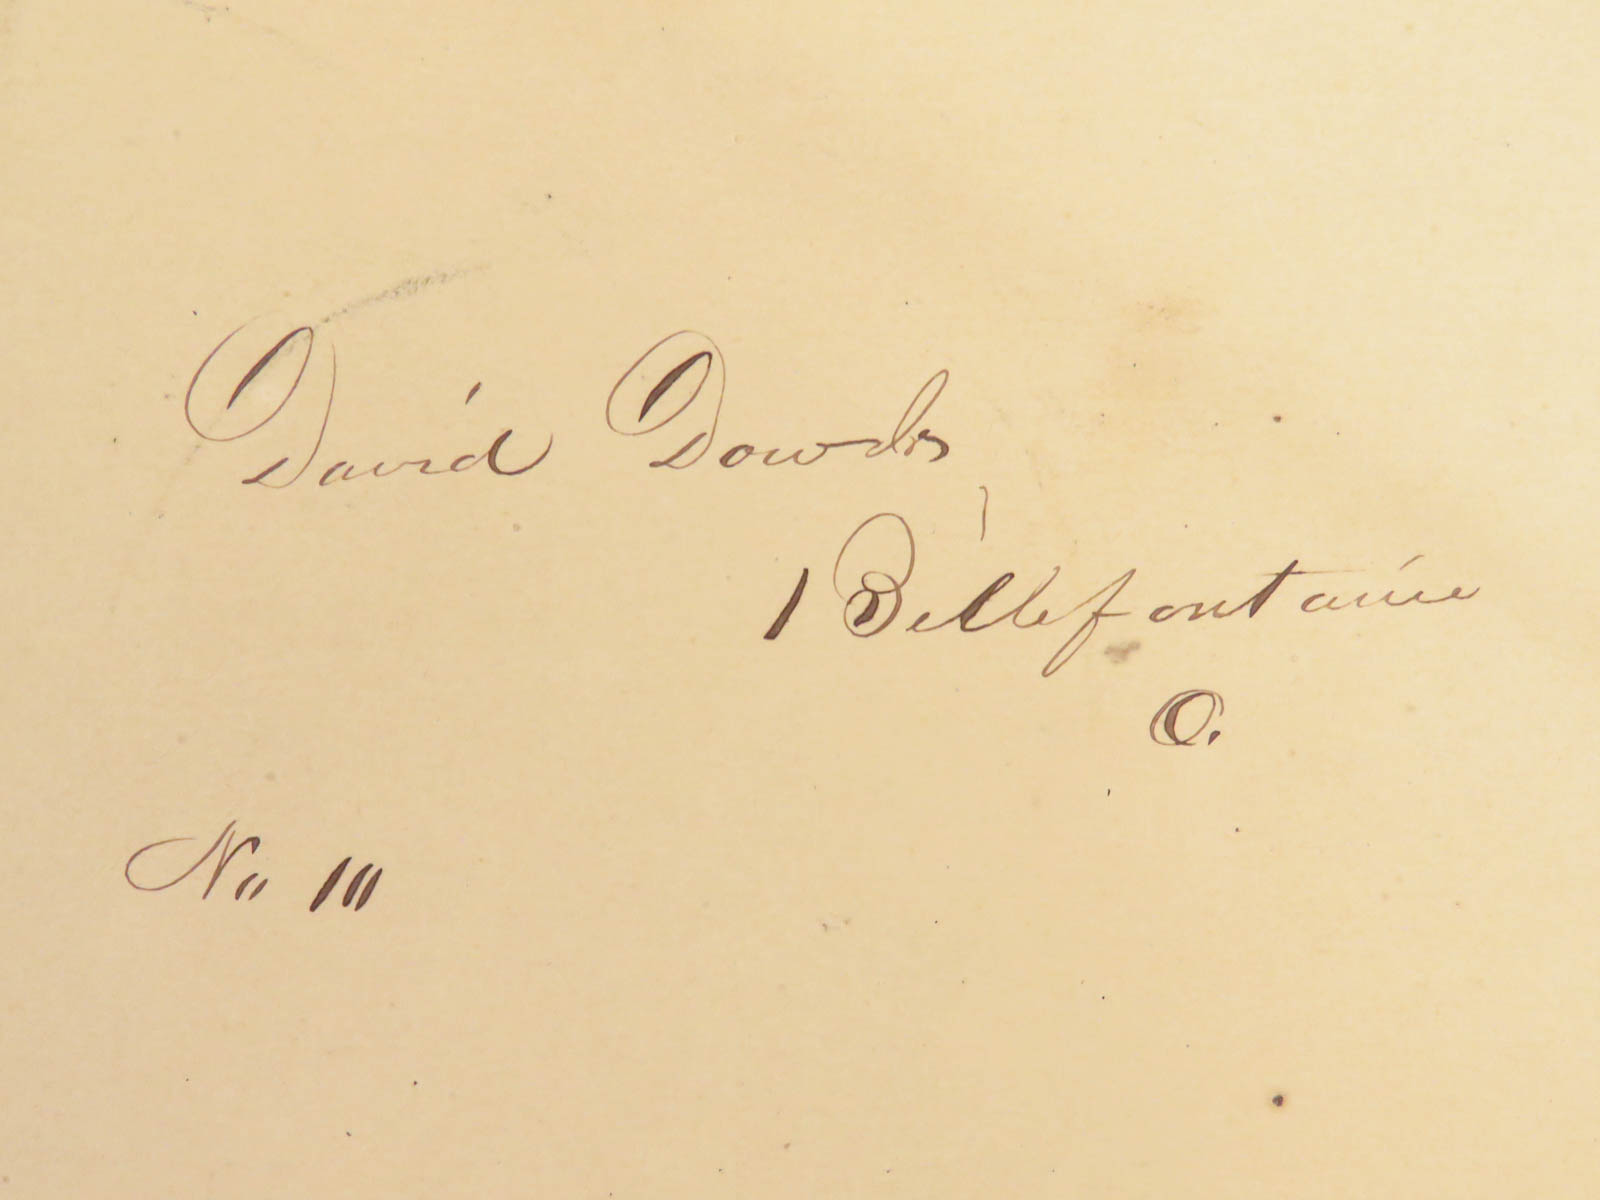 David Dowds,
Bellefontaine
O.
No 10